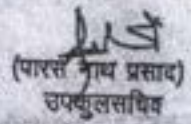 (पारस नाथ प्रसाद)
उपकुलसचिव